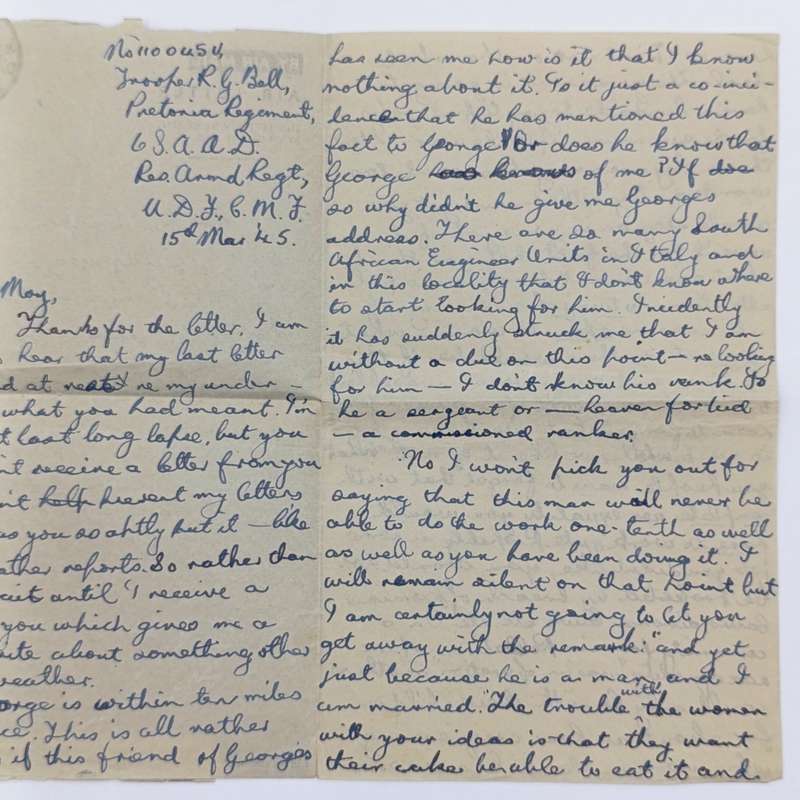 No 1100454,
Trooper R. G. Bell,
Pretoria Regiment,
6 S. A. A. D.
Res. Armd Regt,
U. D. F., C. M. F.
15th Mar '45.
May,
Thanks for the letter. I am
hear that my last letter
d at re my under-
what you had meant. I'm
t last long lapse, but you
n't receive a letter from you
n't help prevent my letters
as you so aptly put it — like
ather reports. So rather than
ait until I receive a
you which gives me a
ite about something other
weather.
orge is within ten miles
ce. This is all rather
if this friend of Georges
has seen me how is it that I know
nothing about it. Is it just a co-inci-
dence that he has mentioned this
fact to George? Or does he know that
George has knows of me? If doe
so why didn't he give me Georges
address. There are so many South
African Engineer Units in Italy and
in this locality that I don't know where
to start looking for him. Incidently
it has suddenly struck me that I am
without a clue on this point — re looking
for him — I don't know his rank. Is
he a sergeant or — heaven forbid
— a commissioned ranker.
No I won't pick you out for
saying that this man will never be
able to do the work one-tenth as well
as well as you have been doing it. I
will remain silent on that point but
I am certainly not going to let you
get away with the remark: "and yet
just because he is a man, and I
am married." The trouble with the women
with your ideas is that they want
their cake be able to eat it and